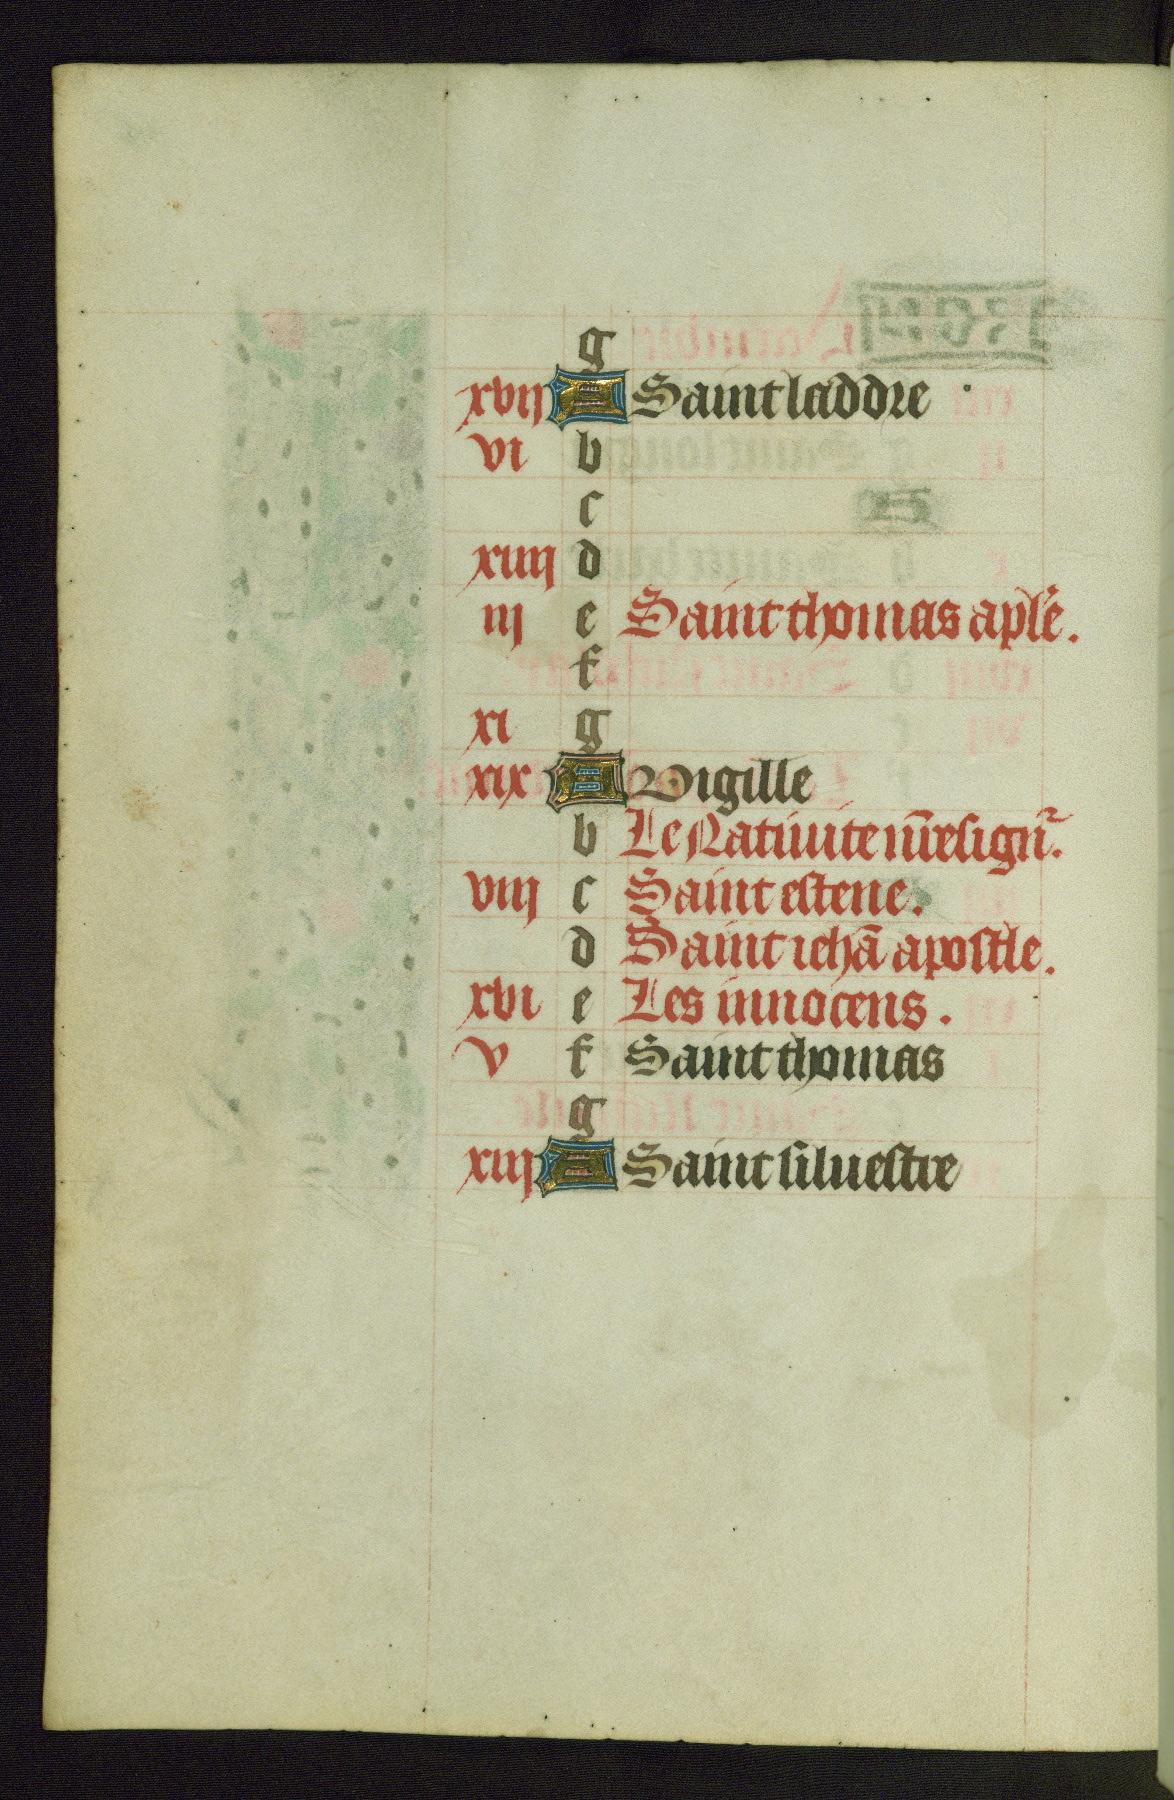 g
xvij A Saint laddre
vi b
c
xiiij d
iij e Saint thomas apl'e.
f
xi g
xix A Vigille
b Le Natiuite nr̄e sign̄r.
viij c Saint estene.
d Saint iehā apostle.
xvi e Les innocens.
v f Saint thomas
g
xiij A Saint siluestre